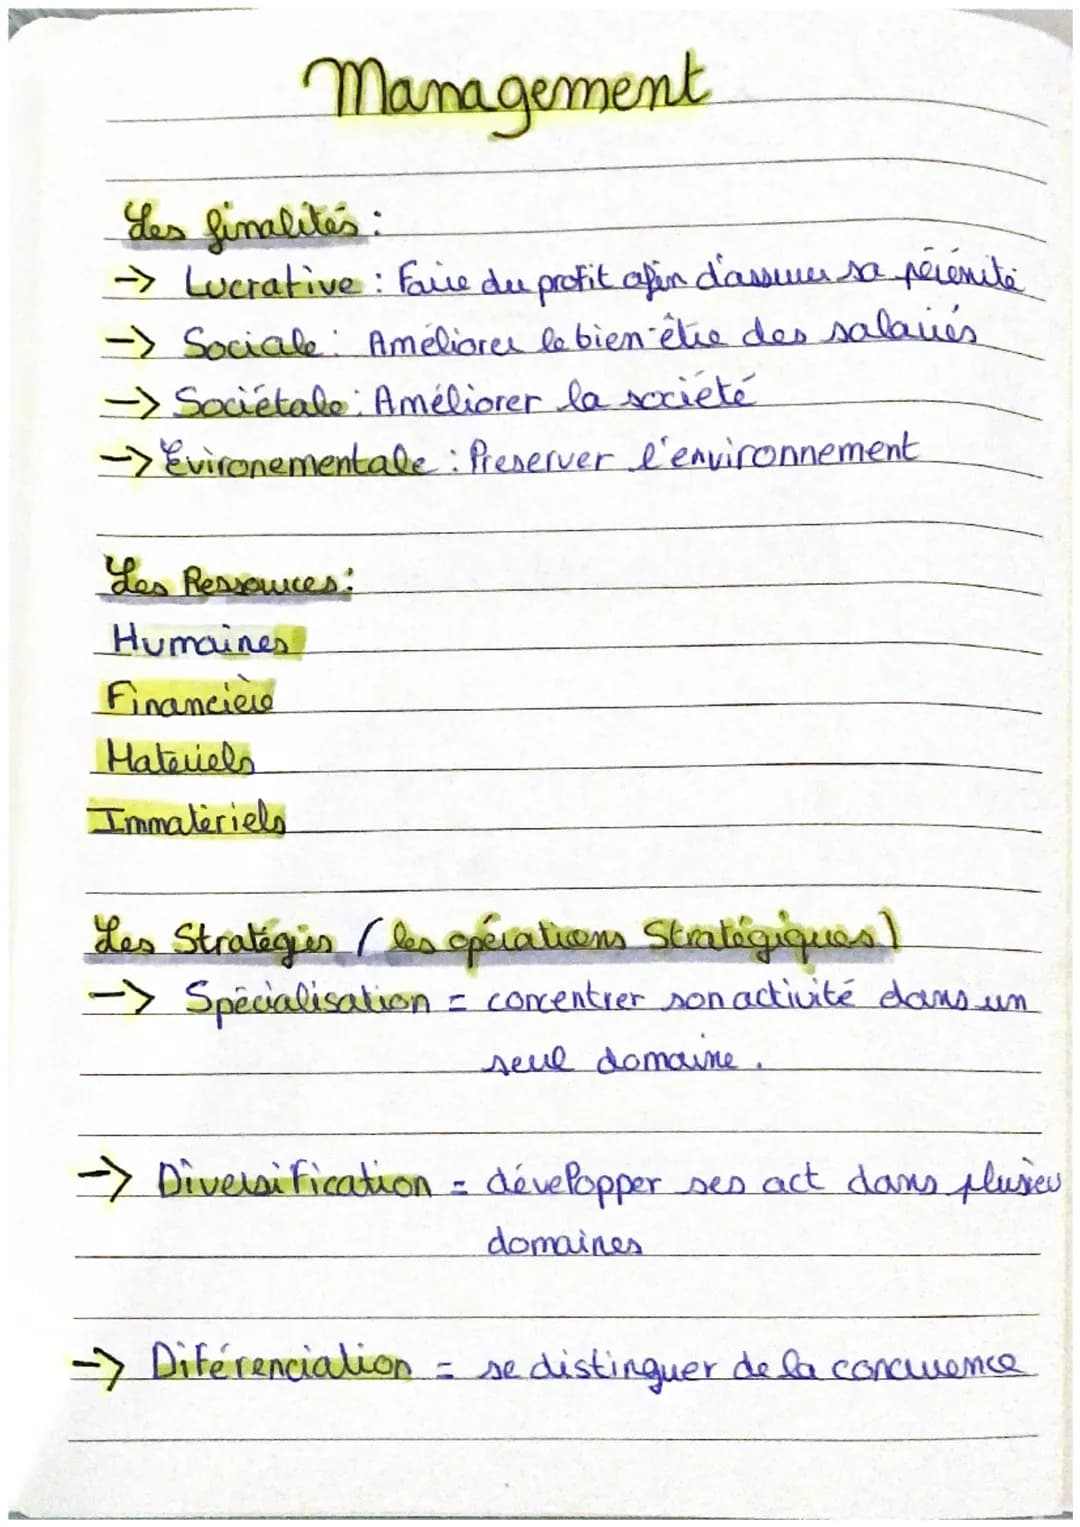 Management
Les finalités :
-> Lucrative : Faire du profit afin d'assurer sa pérénité
-> Sociale : Améliorer le bien-être des salariés
-> Sociétale : Améliorer la société
-> Evironementale : Preserver l'environnement
Les Ressources :
Humaines
Financière
Materiels
Immatériels
Les Stratégies (les opérations Stratégiques)
-> Spécialisation = concentrer son activité dans un
seul domaine.
-> Diversification = développer ses act dans plusieu
domaines
-> Diférenciation = se distinguer de la concurence